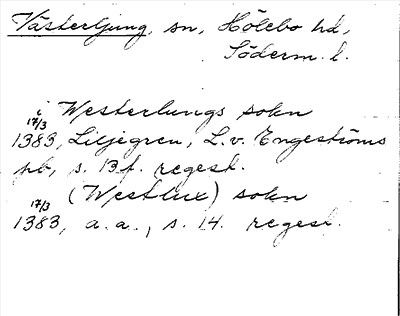 Västerljung, sn, Hölebo hd,
Söderm. l.
i Westerlungs sokn
17/3 1383, Liljegren, L. v. Engeströms
pb, s. 13 f. regest.
(Westlux) sokn
17/3 1383, a. a., s. 14. regest.